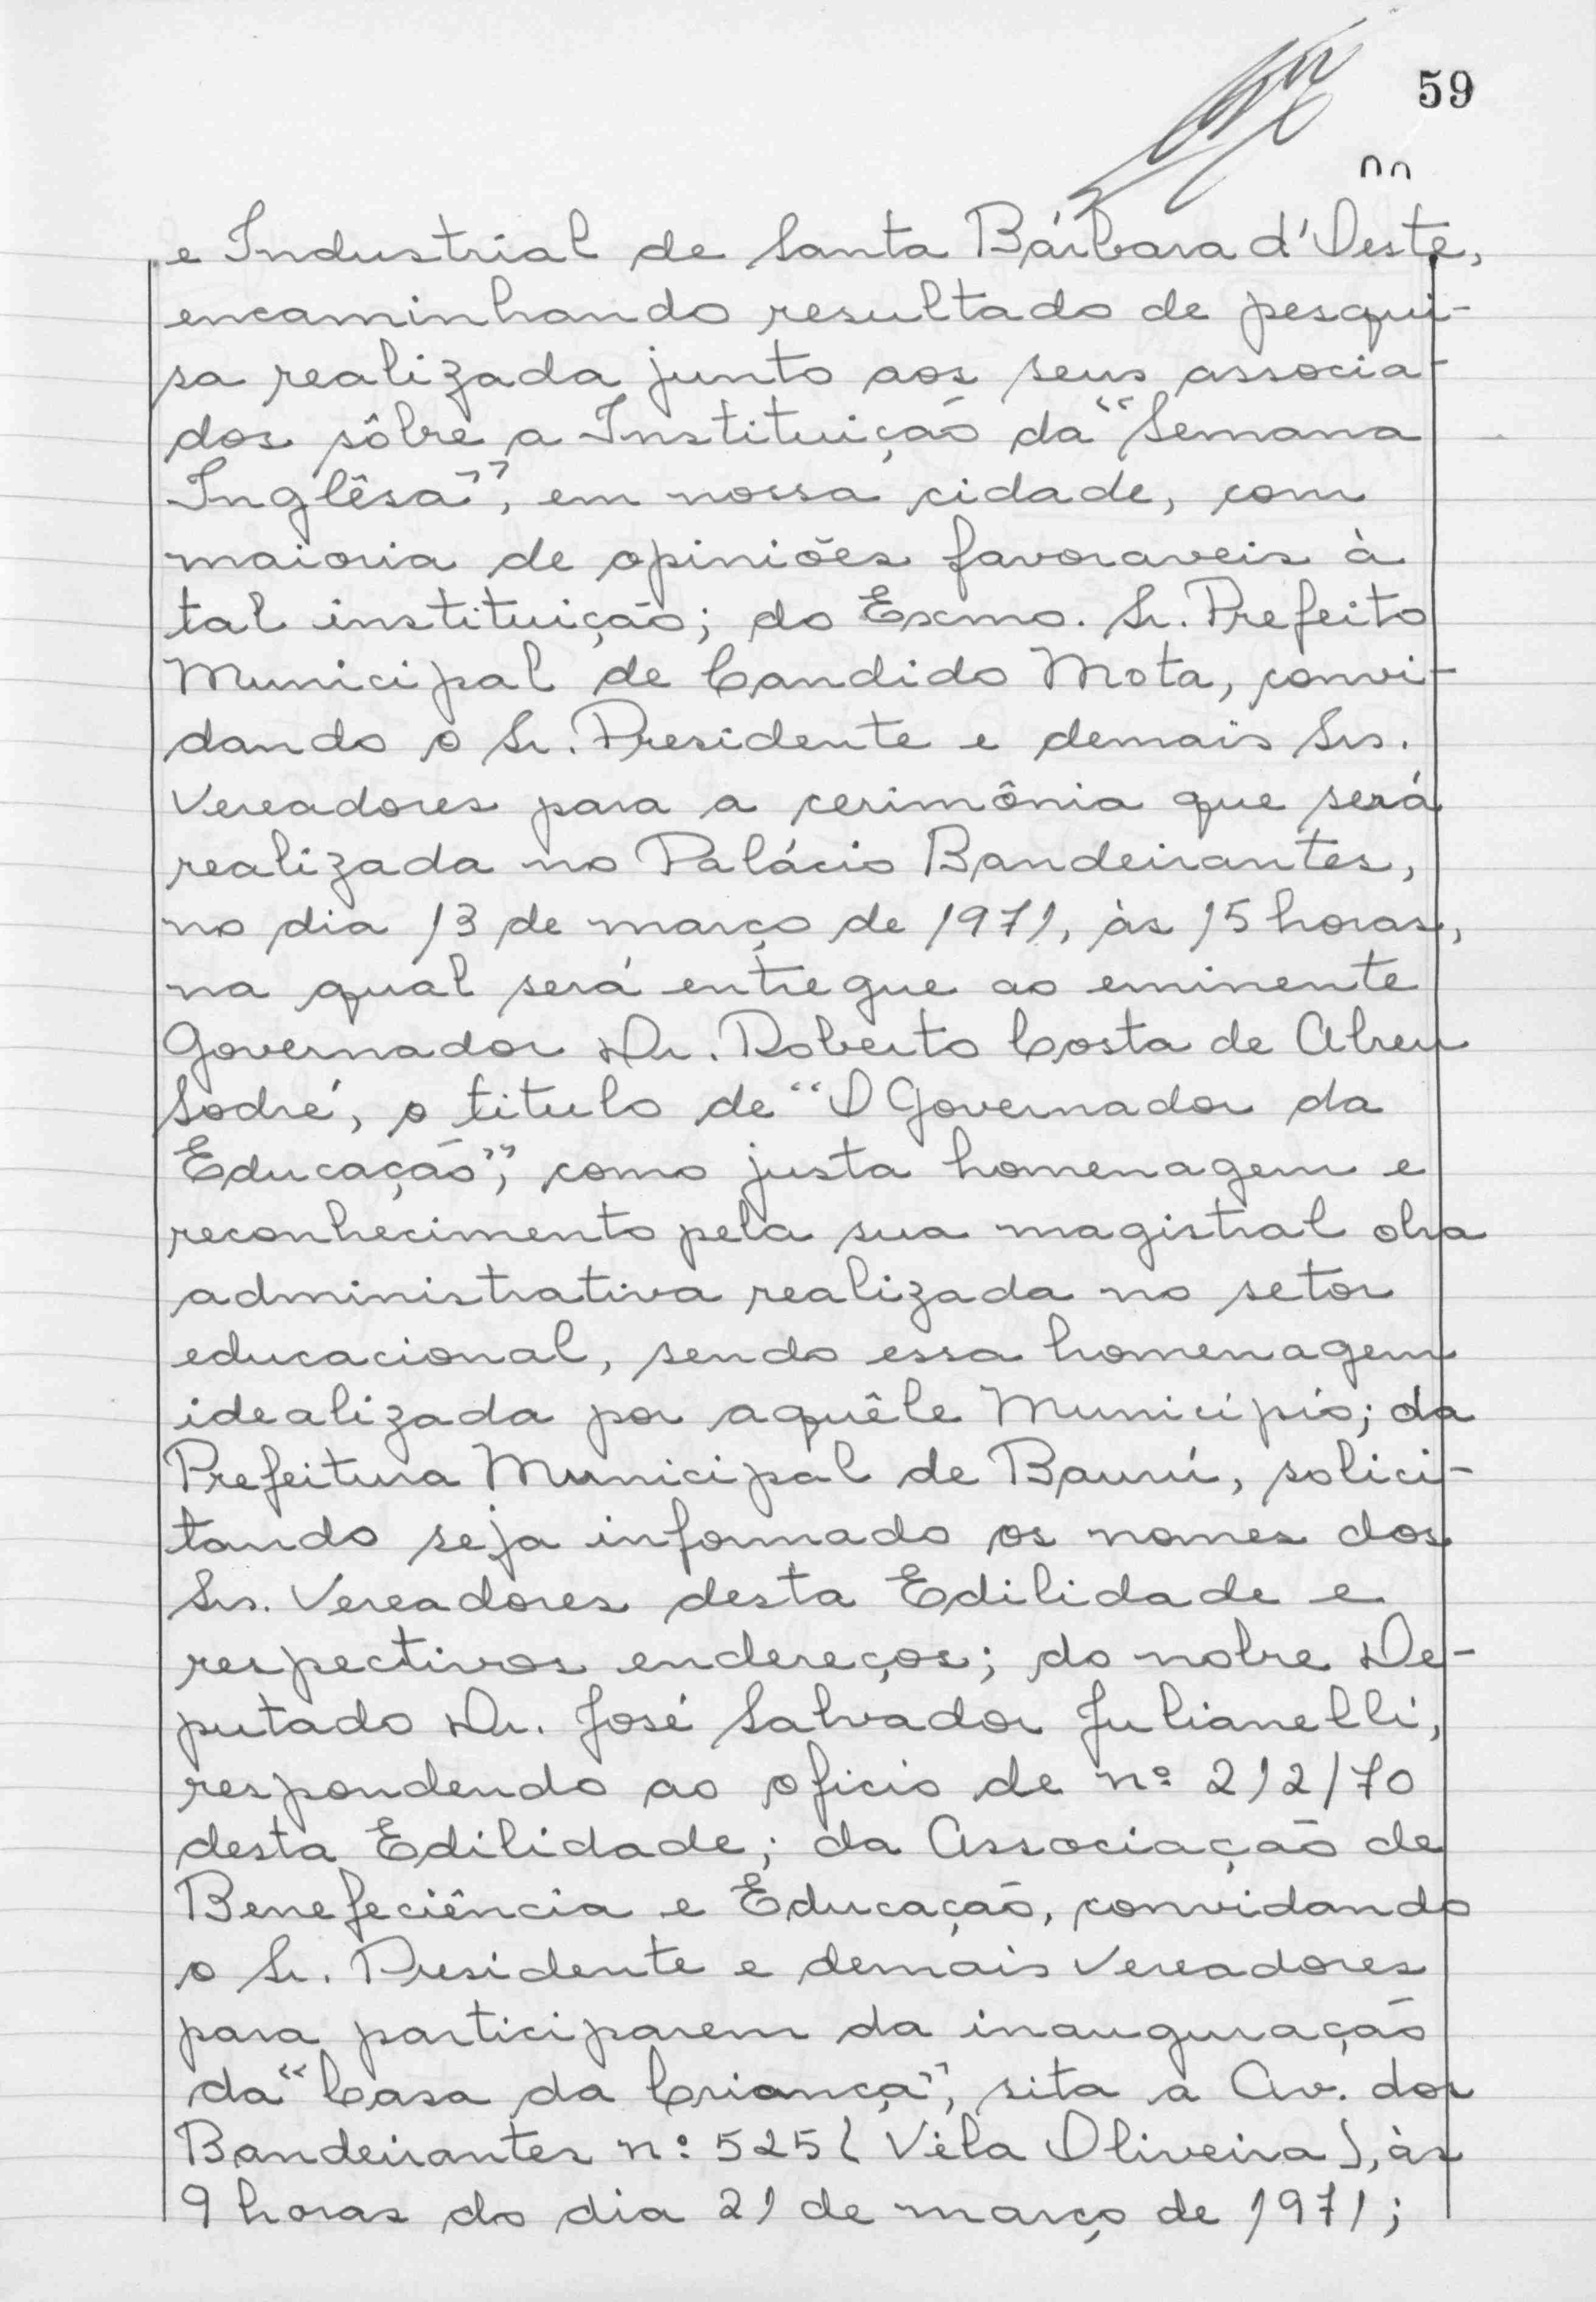 59
e Industrial de Santa Bárbara d'Oeste,
encaminhando resultado de pesqui-
sa realizada junto aos seus associa-
dos sôbre a Instituição da "Semana
Inglêsa", em nossa cidade, com
maioria de opiniões favoraveis à
tal instituição; do Exmo. Sr. Prefeito
Municipal de Candido Mota, convi-
dando o Sr. Presidente e demais Srs.
Vereadores para a cerimônia que será
realizada no Palácio Bandeirantes,
no dia 13 de março de 1971, às 15 horas,
na qual será entregue ao eminente
Governador Dr. Roberto Costa de Abreu
Sodré, o titulo de "O Governador da
Educação", como justa homenagem e
reconhecimento pela sua magistral obra
administrativa realizada no setor
educacional, sendo essa homenagem
idealizada por aquêle Municipio; da
Prefeitura Municipal de Baurú, solici-
tando seja informado os nomes dos
Srs. Vereadores desta Edilidade e
respectivos endereços; do nobre De-
putado Dr. José Salvador Julianelli,
respondendo ao oficio de nº 212/70
desta Edilidade; da Associação de
Benefeciência e Educação, convidando
o Sr. Presidente e demais Vereadores
para participarem da inauguração
da "Casa da Criança", sita a Av. dos
Bandeirantes nº 525 (Vila Oliveira), às
9 horas do dia 21 de março de 1971;